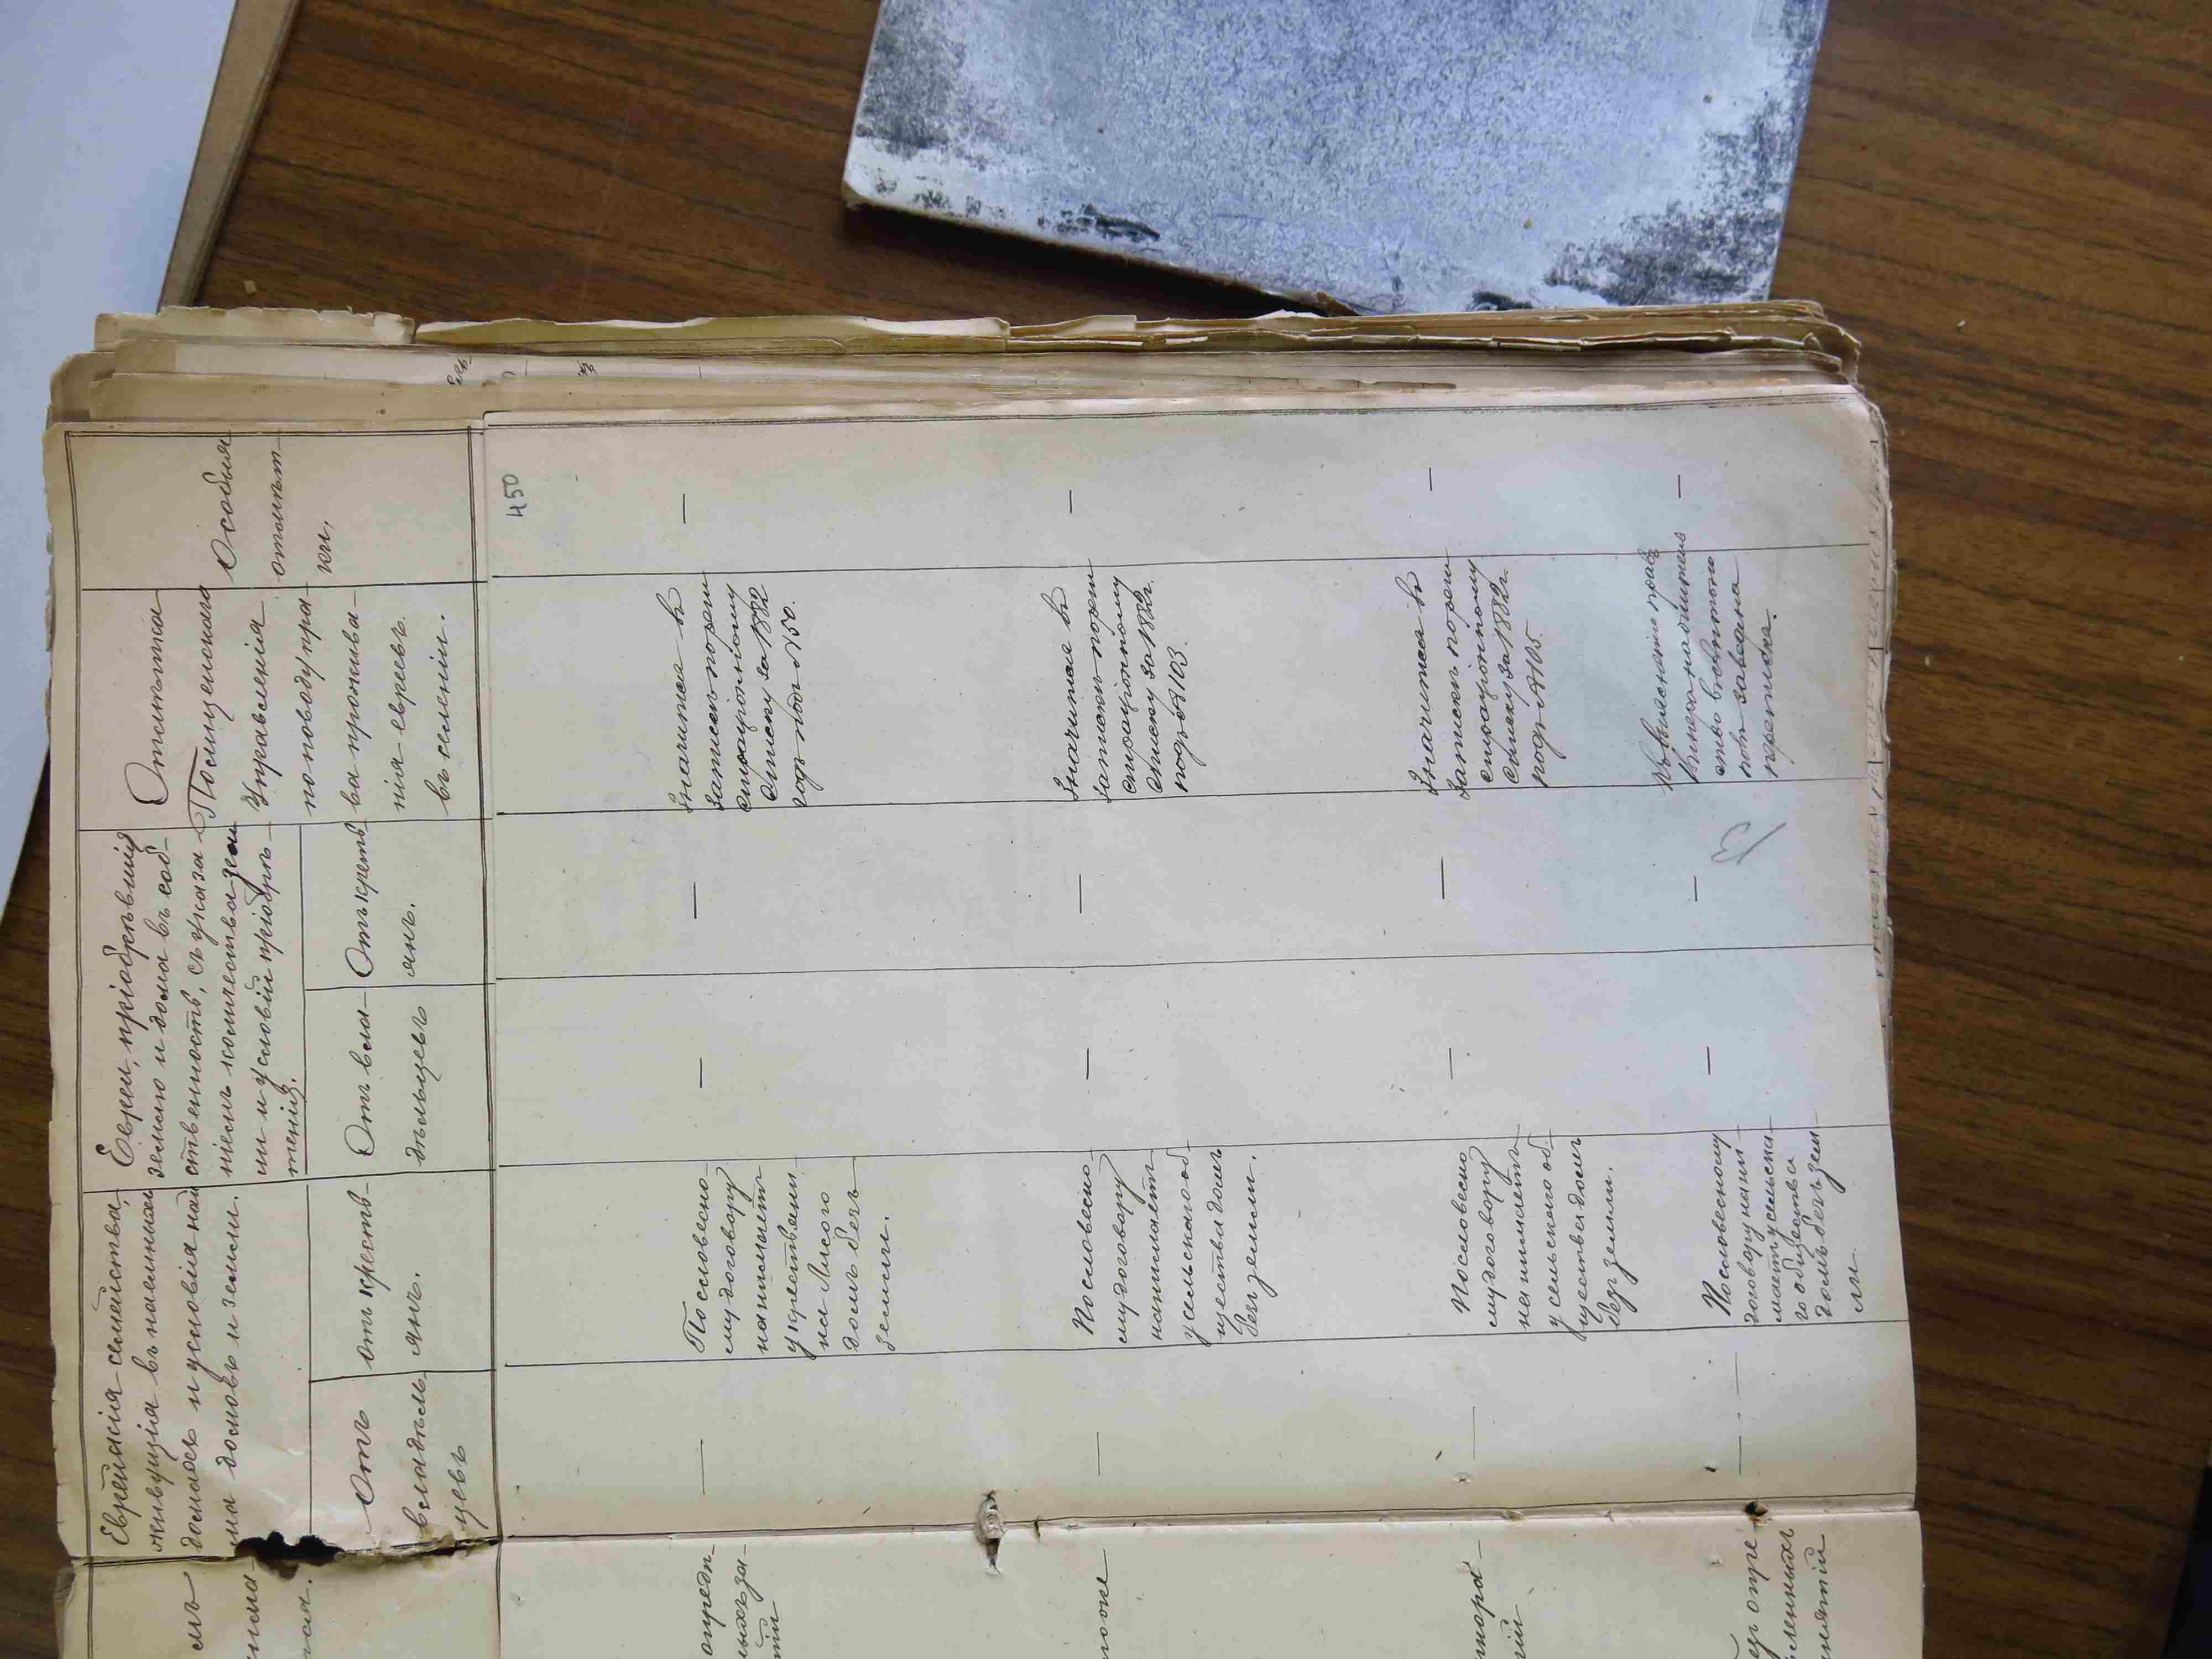 мъ
Еврейскія семейства,
живущія въ наемныхъ
домахъ и условія най
ма домовъ и земли.
Отъ
владѣль
цевъ
отъ крестъ-
янъ.
Евреи, пріобрѣвшія
землю и дома въ соб-
ственность, съ указа-
ніемъ количества зем
ли и условій пріобрѣ-
тенія.
Отъ вла-
дѣльцевъ
Отъ кресть
янъ.
Отмѣтка
Полицейскаго
Управленія
по поводу пра-
ва прожива-
нія евреевъ
въ селеніи.
Особыя
отмѣт-
ки.
450
опредѣ-
—
По словесно-
му договору
нанимаетъ
у крестьяни
на Лисого
домъ безъ
земли.
—
—
Значится въ
запискѣ по реги
страціонному
списку за 1882
годъ подъ №150.
—
—
По словесно-
му договору
нанимаетъ
у сельскаго об
щества домъ
безъ земли.
—
—
Значится въ
запискѣ по реги
страціонному
списку за 1882г.
подъ №103.
—
—
По словесно
му договору
нанимаетъ
у сельскаго об
щества домъ
безъ земли.
—
—
Значится въ
запискѣ по реги
страціонному
списку за 1882г.
подъ №105.
—
—
По словесному
договору нани-
маетъ у сельска-
го общества
домъ безъ зем-
ли.
—
—
о выясненіи права
на жительство
заведена
переписка.
—